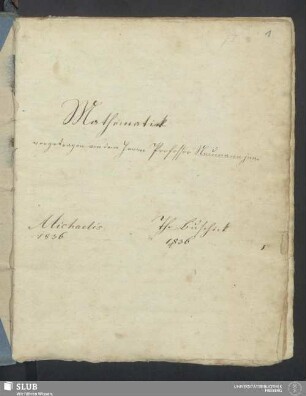 1
Mathematik
vorgetragen von dem Herrn Professor Naumann jun.
Michaelis
1836
Th. Buschick
1836
SLUB
Wir führen Wissen.
UNIVERSITÄTSBIBLIOTHEK
FREIBERG